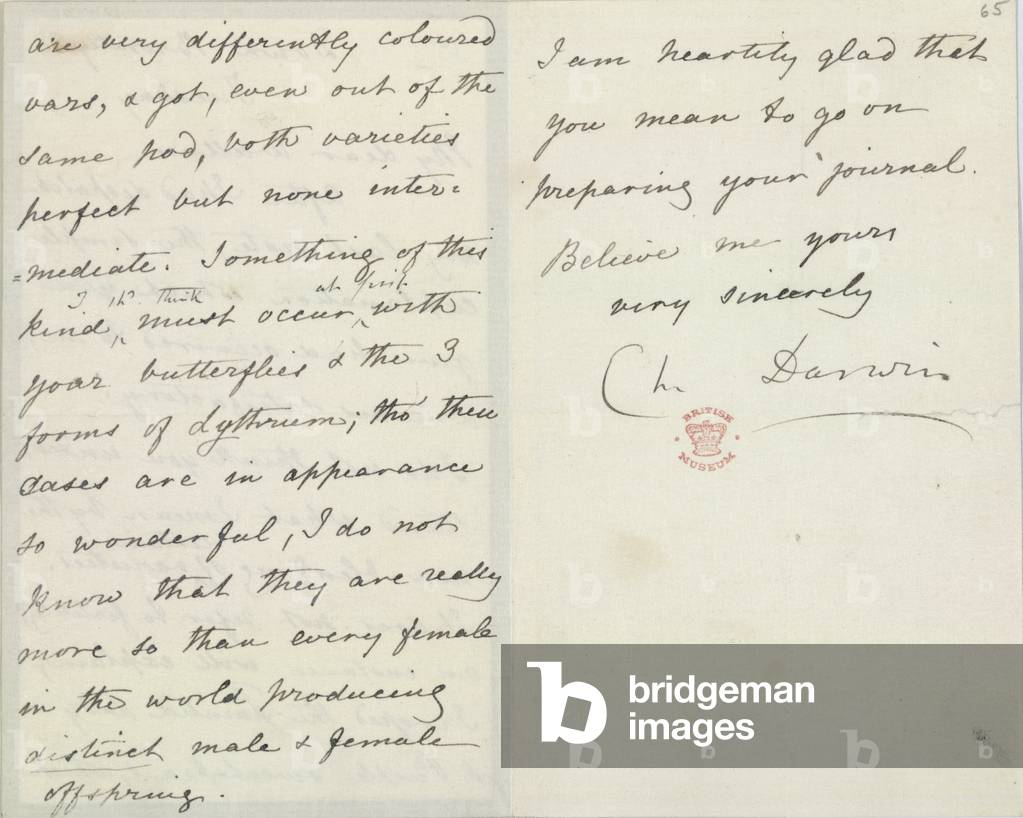 are very differently coloured
vars, & got, even out of the
same pod, both varieties
perfect but none inter=
=mediate. Something of this
I shd. think at first
kind, must occur, with
your butterflies & the 3
forms of Lythrum; tho' these
cases are in appearance
so wonderful, I do not
know that they are really
more so than every female
in the world producing
distinct male & female
offspring.
65
I am heartily glad that
you mean to go on
preparing your journal.
Believe me yours
very sincerely
Ch. Darwin
BRITISH
MUSEUM
bridgeman
images